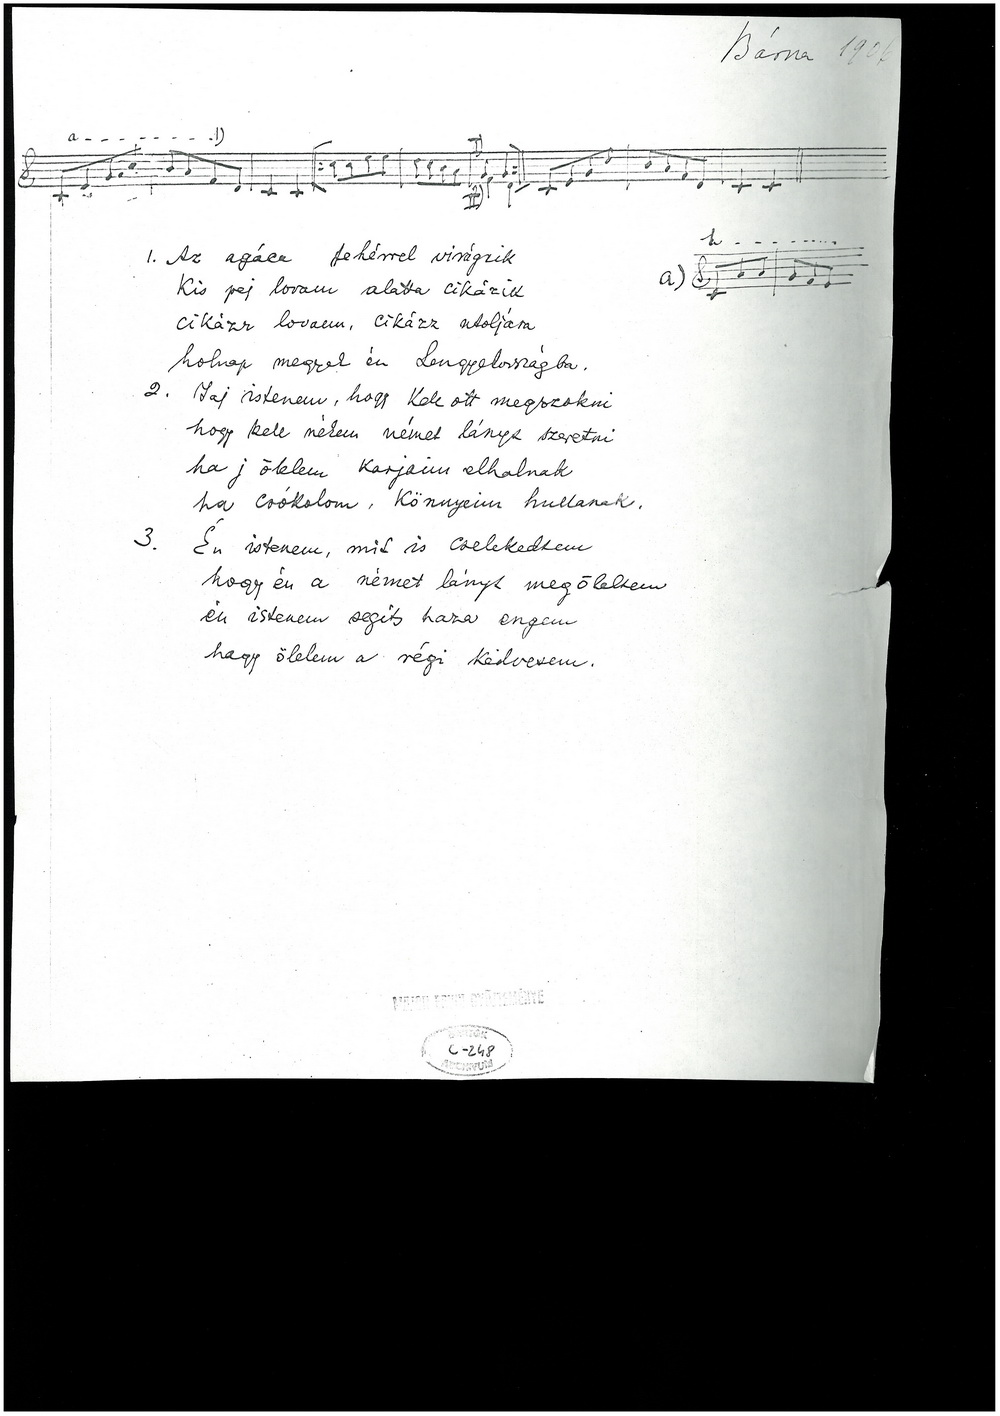 Bárna 190
a - - - - - - - - 1)
I)
II)
b - - - - - - -
a)
1. Az agáca fehérrel virágzik
Kis pej lovam alatta cikázik
cikázz lovam, cikázz utoljára
holnap megyek én Lengyelországba.
2. Jaj istenem, hogy kell ott megszokni
hogy kell nékem német lányt szeretni
ha j ölelem karjaim elhalnak
ha csókolom, könnyeim hullanak.
3. Én istenem, mit is cselekedtem
hogy én a német lányt megöleltem
én istenem segíts haza engem
hagy ölelem a régi kedvesem.
GYŰJTEMÉNYE
C-248
ARCHIVUM